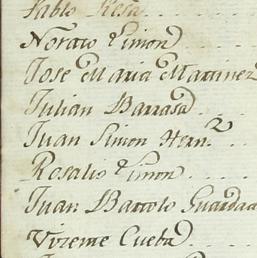 Pablo Rosa
Norato Simon
Jose Maria Martinez
Julian Barrasa
Juan Simon Hern.z
Rosalio Simon
Juan Bartolo Guarda
Vizente Cueba